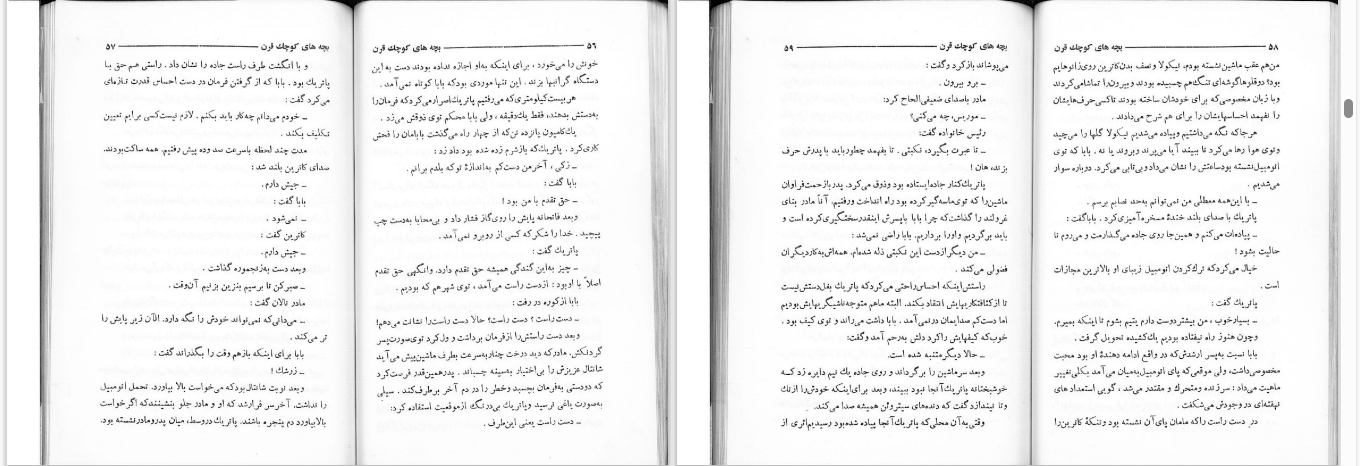 ۵۶ بچه های کوچك قرن
خونش را می‌خورد ، برای اینکه به‌او اجازه نداده بودند دست به این
دستگاه گرانبها بزند . این تنها موردی بودکه بابا کوتاه نمی‌آمد .
هربیست‌کیلومتری‌که می‌رفتیم پاتریك‌اصرارمی‌کردکه فرمان‌را
به‌دستش بدهند، فقط یك‌دقیقه ، ولی بابا محکم توی ذوقش می‌زد .
یك‌کامیون پانزده تن‌که از چهار راه می‌گذشت بابامان را فحش
کاری‌کرد . پاتریك‌که بازشرم زده شده بود داد زد :
ــ زکی ، آخرمن دست‌کم به‌اندازۀ توکه بلدم برانم .
بابا گفت :
ــ حق تقدم با من بود !
وبعد فاتحانه پایش را روی‌گاز فشار داد و بی‌محابا به‌دست چپ
پیچید . خدا را شکرکه کسی از روبرو نمی‌آمد .
پاتریك گفت :
ــ چیز به‌این گندگی همیشه حق تقدم دارد. وانگهی حق تقدم
اصلاً با اوبود : ازدست راست می‌آمد ، توی شهرهم که بودیم .
بابا ازکوره در رفت :
ــ دست راست ؟ دست راست؟ حالا دست راست‌را نشانت می‌دهم!
وبعد دست راستش‌را ازفرمان برداشت و ول‌کرد توی‌صورت‌پسر
گردنکش. مادرکه دید درخت چنارباسرعت بطرف ماشین‌پیش می‌آید
شانتال عزیزش را بی‌اختیار به‌سینه چسباند . پدرهمین‌قدر فرصت‌کرد
که دودستی به‌فرمان بچسبد وخطر را در دم آخر برطرف‌کند . سیلی
به‌صورت یاغی نرسید وپاتریك بی‌درنگ ازموقعیت استفاده کرد:
ــ دست راست یعنی این‌طرف .
بچه های کوچك قرن ۵۷
و با انگشت طرف راست جاده را نشان داد . راستی هم حق با
پاتریك بود . بابا که از گرفتن فرمان در دست احساس قدرت تازه‌ای
می‌کرد گفت :
ــ خودم می‌دانم چه‌کار باید بکنم . لازم نیست‌کسی برایم تعیین
تکلیف بکند .
مدت چند لحظه باسرعت صد وده پیش رفتیم. همه ساکت‌بودند.
صدای کاترین بلند شد :
ــ جیش دارم .
بابا گفت :
ــ نمی‌شود .
کاترین گفت :
ــ جیش دارم .
وبعد دست به‌زنجموره گذاشت .
ــ صبرکن تا برسیم بنزین بزنیم آن‌وقت .
مادر نالان گفت :
ــ می‌دانی‌که نمی‌تواند خودش را نگه دارد. الآن زیر پایش را
تر می‌کند .
بابا برای اینکه بازهم وقت را بگذراند گفت :
ــ زرشك !
وبعد نوبت شانتال بودکه می‌خواست بالا بیاورد. تحمل اتومبیل
را نداشت. آخرسر قرارشد که او و مادر جلو بنشینندکه اگرخواست
بالابیاورد دم پنجره باشند. پاتریك دروسط، میان پدرومادرنشسته بود.
۵۸ بچه های کوچك قرن
من‌هم عقب ماشین‌نشسته بودم، نیکولا و نصف بدن‌کاترین روی‌زانوهایم
بود؛ دوقلوهاگوشه‌ای تنگ‌هم چسبیده بودند وبیرون‌را تماشامی‌کردند
وبا زبان مخصوصی‌که برای خودشان ساخته بودند تاکسی‌حرف‌هایشان
را نفهمد احساسهایشان را برای هم شرح می‌دادند .
هرجاکه نگه می‌داشتیم وپیاده می‌شدیم نیکولا گلها را می‌چید
وتوی هوا رها می‌کرد تا ببیند آیا می‌پرند ومی‌روند یا نه . بابا که توی
اتومبیل‌نشسته بودساعتش را نشان می‌داد وبی‌تابی‌می‌کرد. دوباره سوار
می‌شدیم .
ــ با این‌همه معطلی من نمی‌توانم به‌حد نصابم برسم .
پاتریك با صدای بلند خندۀ مسخره آمیزی‌کرد . باباگفت :
ــ پیاده‌ات می‌کنم و همین‌جا روی جاده می‌گذارمت و می‌روم تا
حالیت بشود !
خیال می‌کردکه ترك‌کردن اتومبیل زیبای او بالاترین مجازات
است .
پاتریك گفت :
ــ بسیارخوب ، من بیشتردوست دارم یتیم بشوم تا اینکه بمیرم.
وچون هنوز راه نیفتاده بودیم یك‌کشیده تحویل گرفت .
بابا نسبت به‌پسر ارشدش‌که در واقع ادامه دهندۀ او بود محبت
مخصوصی‌داشت، ولی موقعی‌که پای اتومبیل‌به‌میان می‌آمد بکلی‌تغییر
ماهیت می‌داد : سرزنده ومتحرك و مقتدر می‌شد ، گویی استعداد های
نهفته‌ای در وجودش می‌شکفت .
در دست راست راکه مامان پای‌آن نشسته بود وتنکۀ کاترین‌را
بچه های کوچك قرن ۵۹
می‌پوشاند بازکرد وگفت :
ــ برو بیرون .
مادر باصدای ضعیفی‌الحاح کرد:
ــ موریس، چه می‌کنی؟
رئیس خانواده گفت:
ــ تا عبرت بگیرد، نکبتی . تا بفهمد چطورباید با پدرش حرف
بزند، هان !
پاتریك‌کنار جاده‌ایستاده بود وذوق می‌کرد. پدربازحمت‌فراوان
ماشین‌را که توی‌ماسه‌گیرکرده بود راه انداخت ورفتیم. آناً مادر بنای
غرولند را گذاشت‌که چرا بابا باپسرش اینقدرسختگیری‌کرده است و
باید برگردیم واورا برداریم. بابا راضی نمی‌شد :
ــ من دیگرازدست این نکبتی ذله شده‌ام، همه‌اش به‌کاردیگران
فضولی می‌کند .
راستش‌اینکه احساس‌راحتی می‌کردکه پاتریك بغل‌دستش‌نیست
تا ازکثافتکاریهایش انتقادبکند. البته ماهم متوجه‌ناشیگریهایش‌بودیم
اما دست‌کم صدایمان درنمی‌آمد . بابا داشت می‌راند و توی کیف بود .
خوب‌که کیفهایش راکرد دلش به‌رحم آمد وگفت:
ــ حالا دیگرمتنبه شده است.
وبعد سرماشین را برگرداند و روی جاده یك نیم دایره زد کـه
خوشبختانه پاتریك آنجا نبود ببیند، وبعد برای‌اینکه خودش‌را ازتك
وتا نیندازد گفت که دنده‌های سیتروئن همیشه صدا می‌کند .
وقتی‌به‌آن محلی‌که پاتریك آنجا پیاده شده‌بود رسیدیم‌اثری از